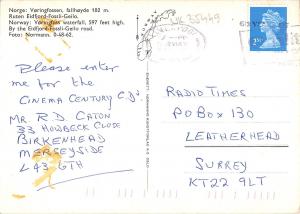 Norge: Vøringfossen, fallhøyde 182 m.
Ruten Eidfjord-Fossli-Geilo.
Norway: Vøringfoss waterfall, 597 feet high.
By the Eidfjord-Fossli-Geilo road.
Foto: Normann. 0-48-62.
Please enter
me for the
CINEMA CENTURY C.D's
MR. R.D. CATON
33 HOLBECK CLOSE
BIRKENHEAD
MERSEYSIDE
L43-6TH
UK 35449
2ND
RADIO TIMES
PO BOX 130
LEATHERHEAD
SURREY
KT22 9LT